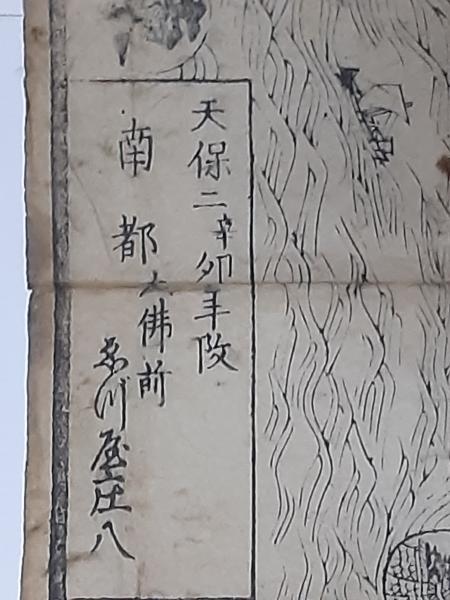 天保二辛卯年改
南都大佛前
ゑ川屋庄八